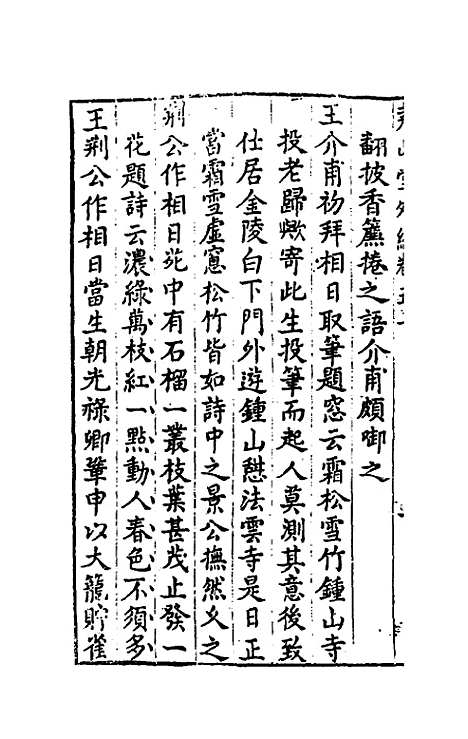 堯山堂外紀卷五十
翻披香簾捲之語介甫頗啣之
王介甫初拜相日取筆題窓云霜松雪竹鍾山寺
投老歸歟寄此生投筆而起人莫測其意後致
仕居金陵白下門外遊鍾山憇法雲寺是日正
當霜雪虛窻松竹皆如詩中之景公撫然久之
荆公作相日苑中有石榴一叢枝葉甚茂止發一
花題詩云濃綠萬枝紅一點動人春色不須多
王荆公作相日當生朝光祿卿鞏申以大籠貯雀